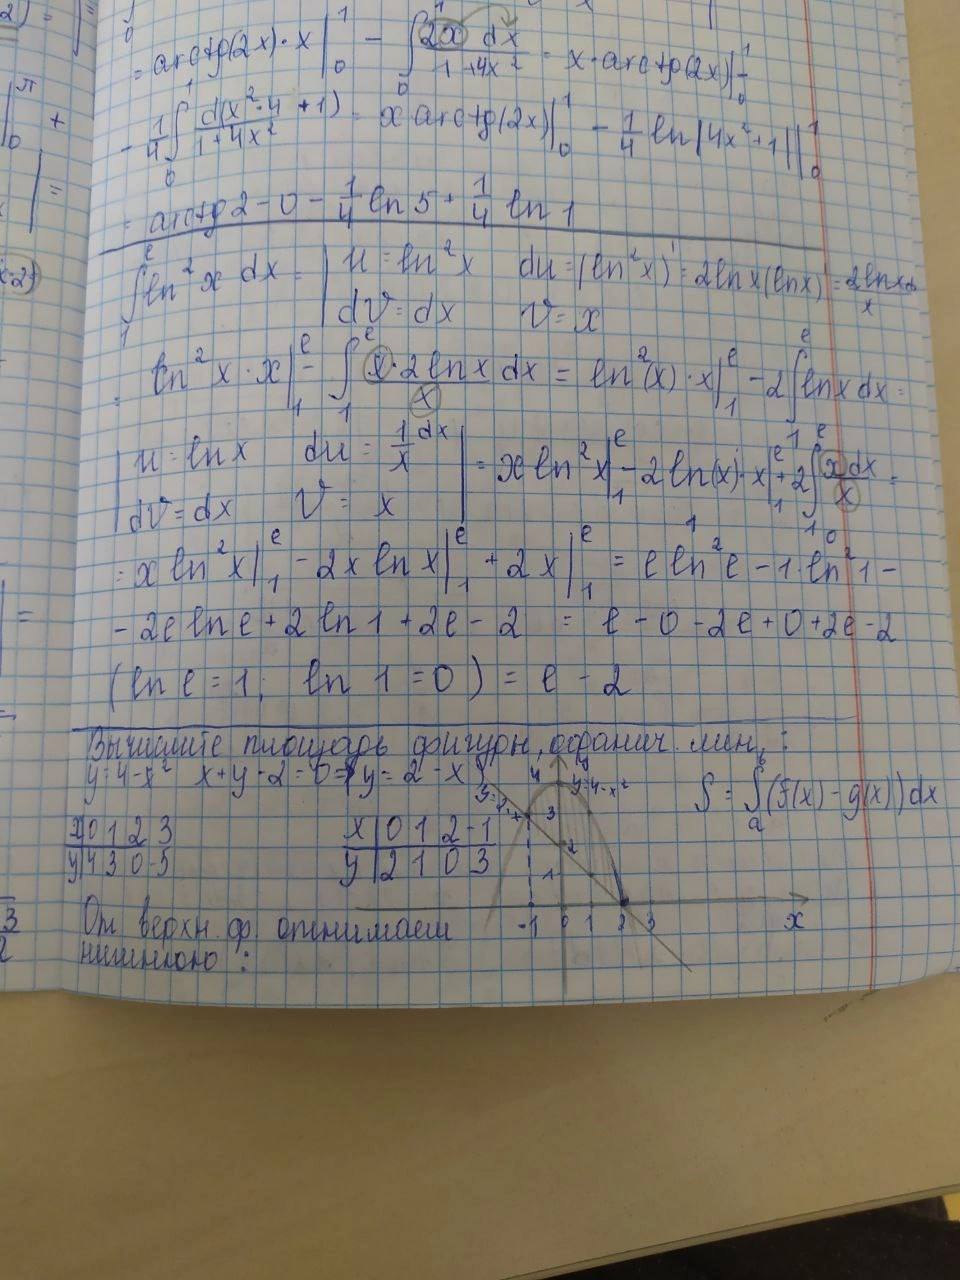 = arctg(2x)·x |₀¹ − ∫₀¹ 2x dx / 1+4x² = x·arctg(2x)|₀¹ −
− 1/4 ∫₀¹ d(x²·4+1) / 1+4x² = x arctg(2x)|₀¹ − 1/4 ln|4x²+1| |₀¹
= arctg2 − 0 − 1/4 ln 5 + 1/4 ln 1
∫₁ᵉ ln²x dx = | u = ln²x du = (ln²x)' = 2lnx(lnx)' = 2lnxdx / x
dv = dx v = x
= ln²x·x|₁ᵉ − ∫₁ᵉ x·2lnx dx / x = ln²(x)·x|₁ᵉ − 2∫₁ᵉ lnx dx =
| u = lnx du = 1/x dx | = x ln²x|₁ᵉ − 2ln(x)·x|₁ᵉ + 2∫₁ᵉ xdx / x =
dv = dx v = x
= x ln²x|₁ᵉ − 2x lnx|₁ᵉ + 2x|₁ᵉ = e ln²e − 1·ln²1 −
1 0
− 2e ln e + 2 ln 1 + 2e − 2 = e − 0 − 2e + 0 + 2e − 2
(ln e = 1; ln 1 = 0) = e − 2
Вычислите площадь фигуры, огранич. лин.:
y = 4 − x² x + y − 2 = 0 => y = 2 − x
S = ∫ₐᵇ (f(x) − g(x)) dx
x 0 1 2 3
y 4 3 0 -5
x 0 1 2 -1
y 2 1 0 3
y
y = 4 − x²
y = 2 − x
4
3
2
1
-1 0 1 2 3 x
От верхн. ф. отнимаем
нижнюю: